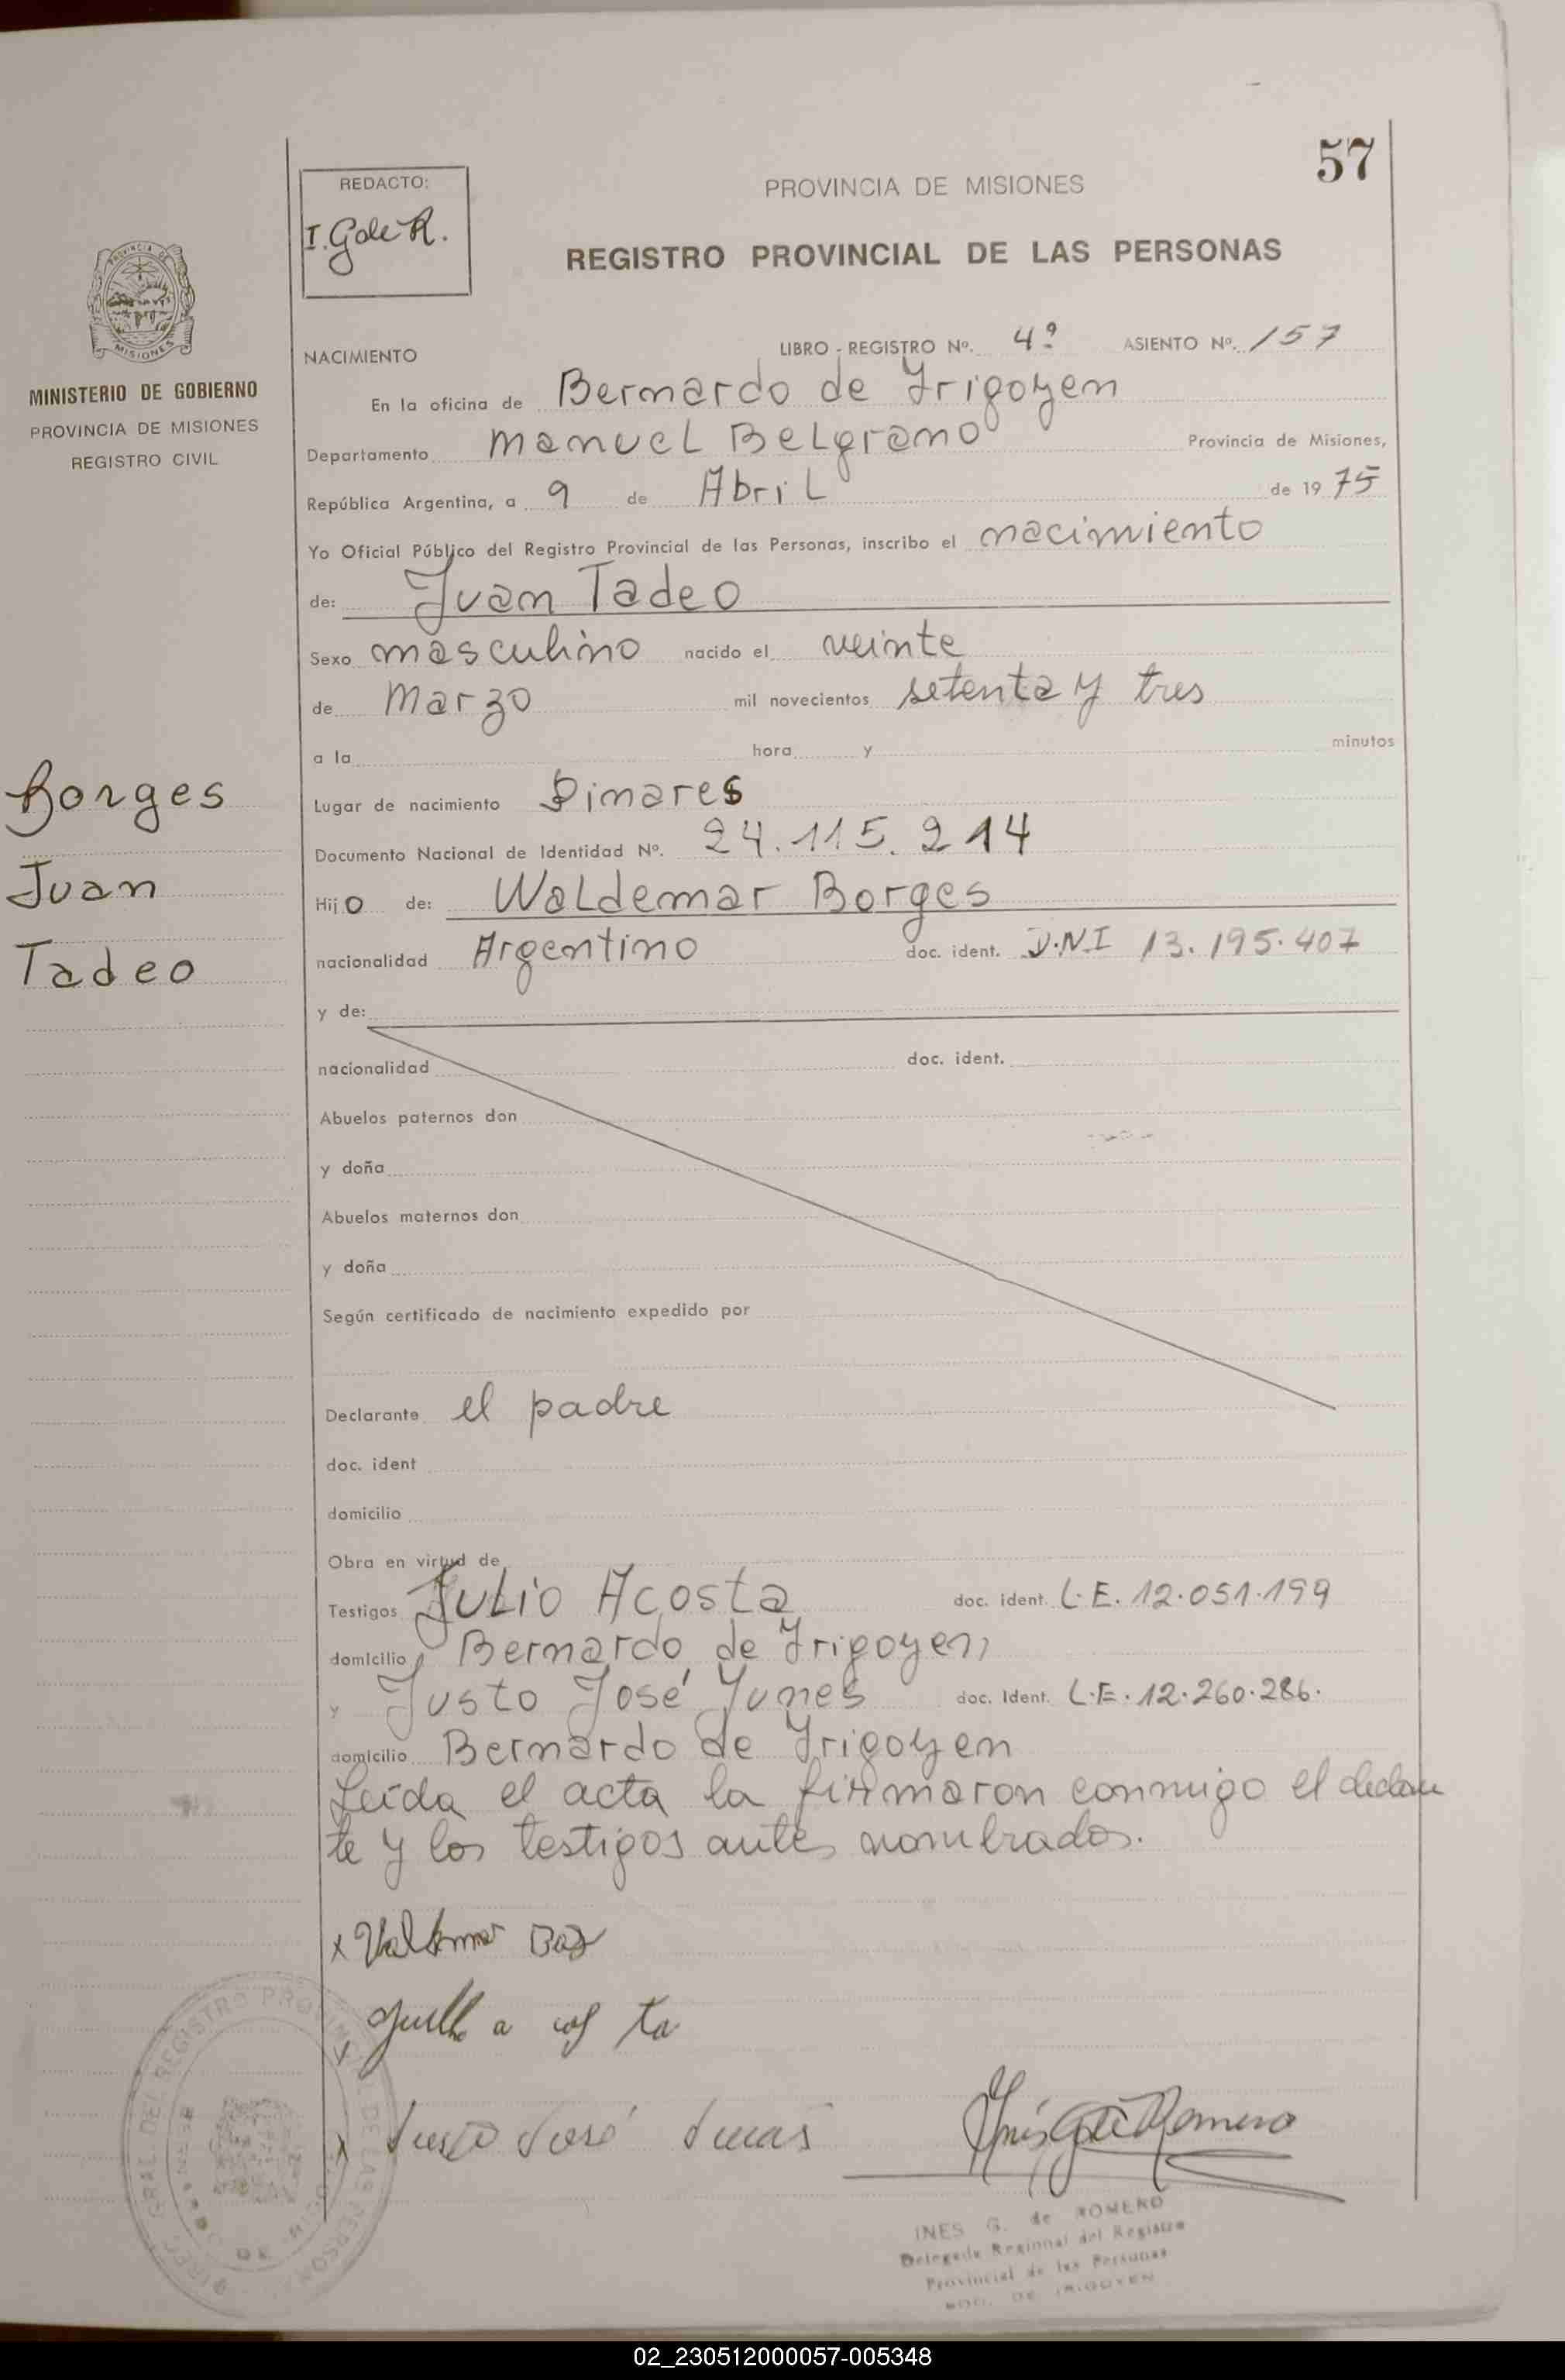 57
REDACTO:
I. G de R.
PROVINCIA DE MISIONES
REGISTRO PROVINCIAL DE LAS PERSONAS
MISIONES
MINISTERIO DE GOBIERNO
PROVINCIA DE MISIONES
REGISTRO CIVIL
NACIMIENTO LIBRO - REGISTRO Nº. 4º ASIENTO Nº. 157
En la oficina de Bernardo de Yrigoyen
Departamento Manuel Belgrano Provincia de Misiones,
República Argentina, a 9 de Abril de 19 75
Yo Oficial Público del Registro Provincial de las Personas, inscribo el nacimiento
de: Juan Tadeo
Sexo masculino nacido el veinte
de Marzo mil novecientos setenta y tres
a la hora y minutos
Borges
Juan
Tadeo
Lugar de nacimiento Pinares
Documento Nacional de Identidad Nº. 24.115.214
Hijo de: Waldemar Borges
nacionalidad Argentino doc. ident. D.N.I 13.195.407
y de:
nacionalidad doc. ident.
Abuelos paternos don
y doña
Abuelos maternos don
y doña
Según certificado de nacimiento expedido por
Declarante el padre
doc. ident
domicilio
Obra en virtud de
Testigos Julio Acosta doc. ident. L.E. 12.051.199
domicilio Bernardo de Yrigoyen
y Justo José Yunes doc. Ident. L.E. 12.260.286.
domicilio Bernardo de Yrigoyen
Leída el acta la firmaron conmigo el declaran
te y los testigos antes nombrados.
x
x
x José
Inés G de Romero
INES G. de ROMERO
Delegada Regional del Registro
Provincial de las Personas
BDO. DE IRIGOYEN
02_230512000057-005348